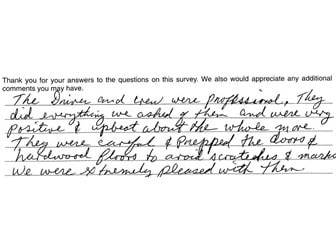 Thank you for your answers to the questions on this survey. We also would appreciate any additional
comments you may have.
The Driver and crew were professional. They
did everything we asked of them and were very
positive & upbeat about the whole move.
They were careful & prepped the doors &
hardwood floors to avoid scratches & marks
We were extremely pleased with them